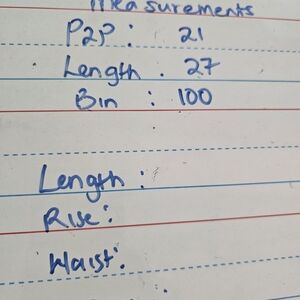 Measurements
P2P : 21
Length . 27
Bin : 100
Length :
Rise :
Waist :